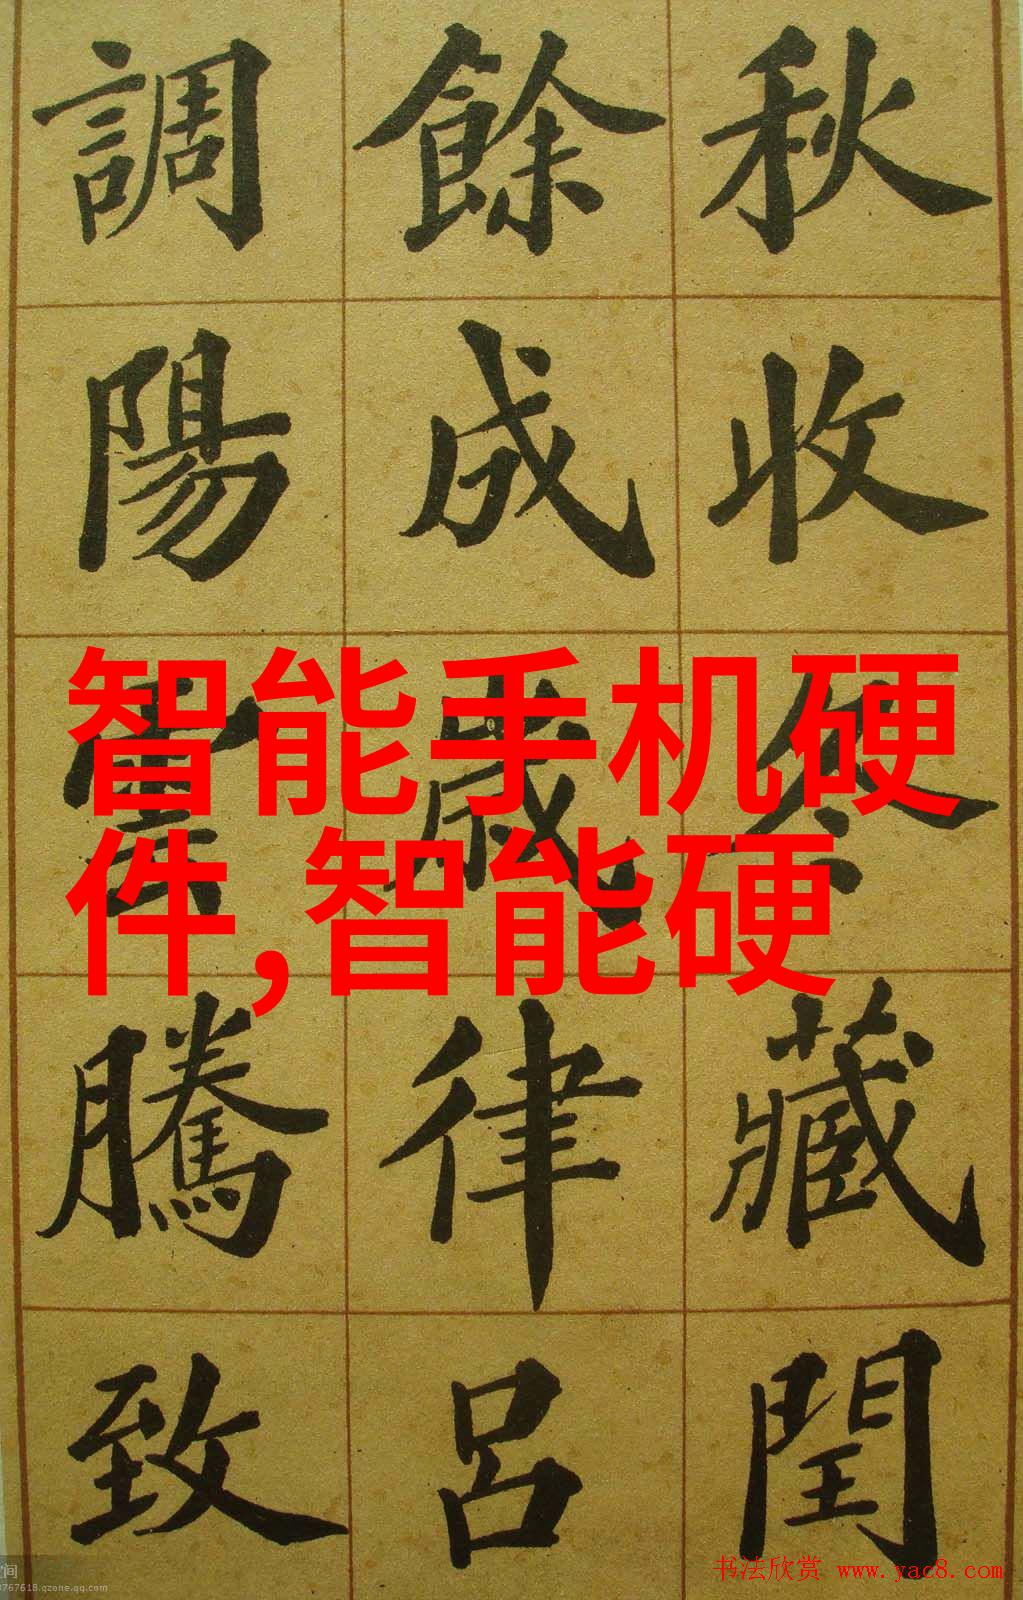 秋收冬藏閏
餘成歲律呂
調陽雲騰致
智能手机硬
件,智能硬
书法欣赏 www.yac8.com
间
767618.qzone.qq.com